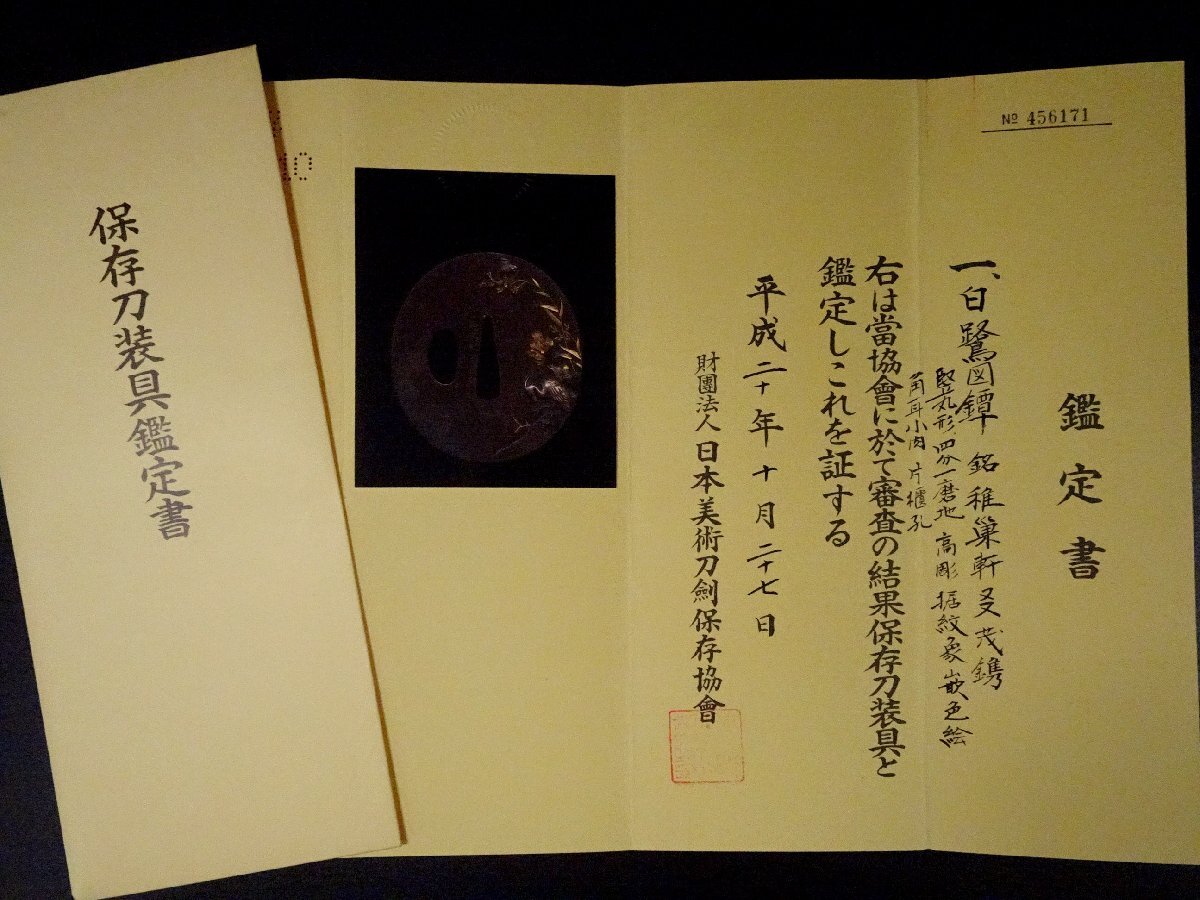 保存刀装具鑑定書
10
№ 456171
鑑定書
一、白鷺図鐔 銘 稚巣軒又茂鐫
竪丸形 四分一磨地 高彫 据紋象嵌色絵
角耳小肉 片櫃孔
右は當協會に於て審査の結果保存刀装具と
鑑定しこれを証する
平成二十年十月二十七日
財團法人 日本美術刀劍保存協會